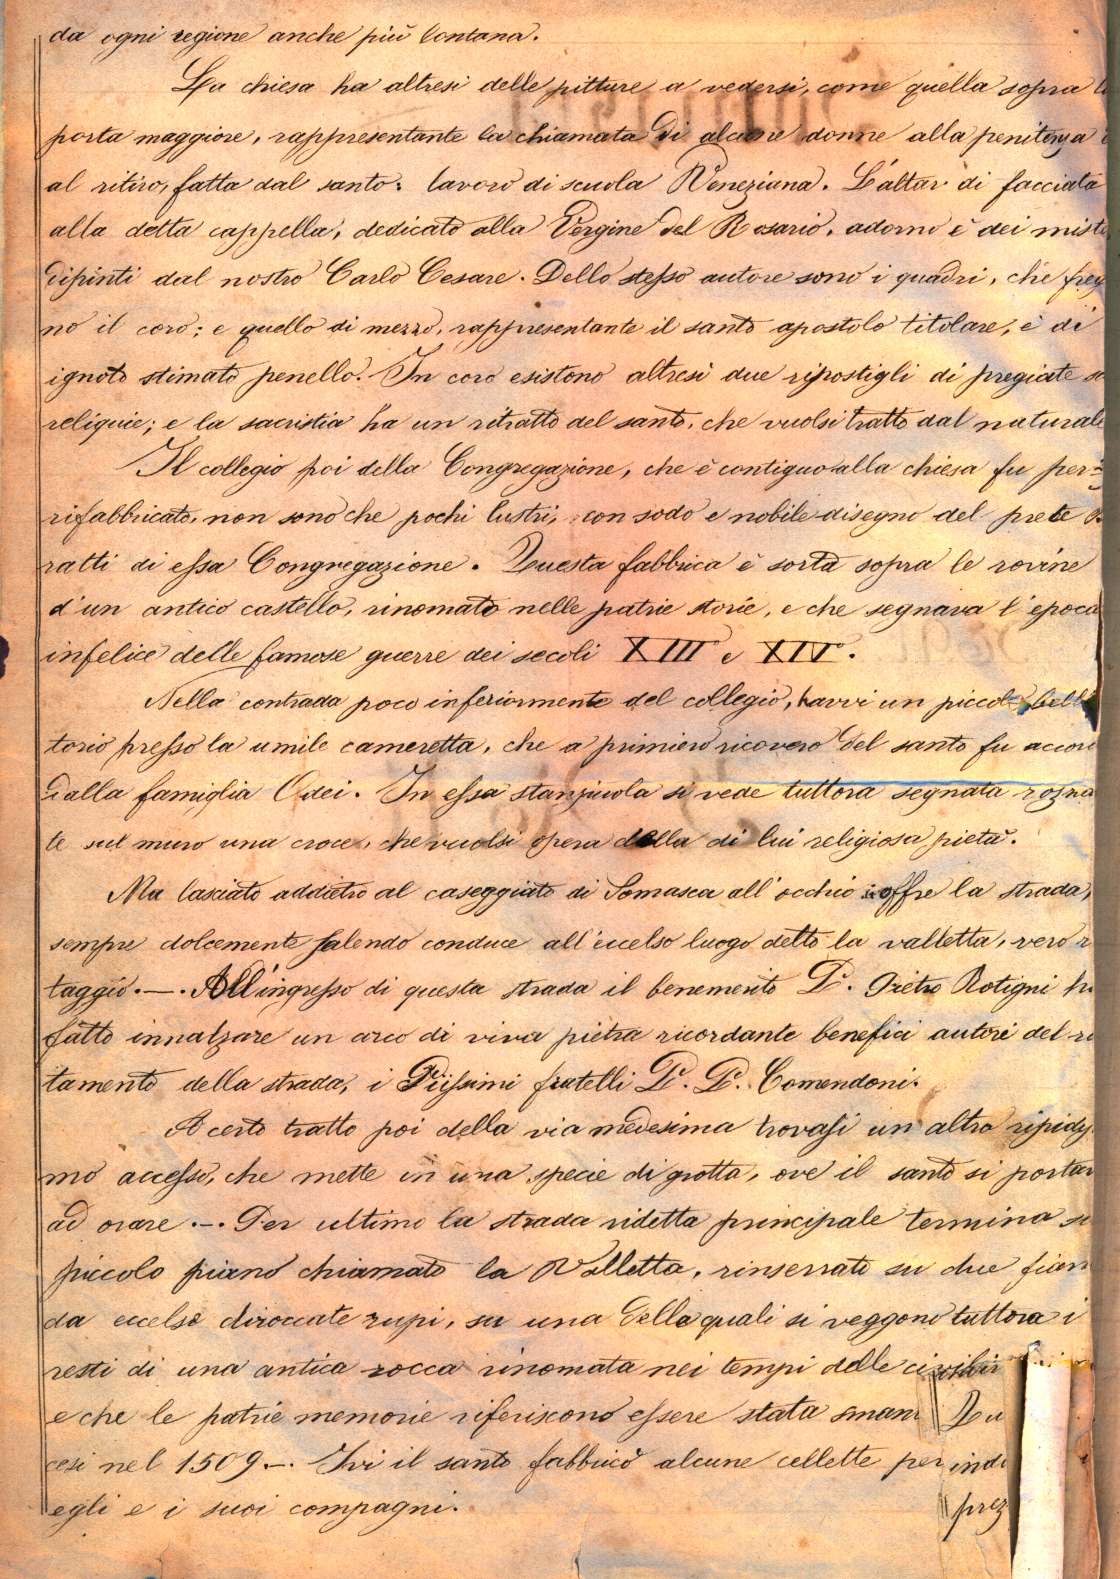 da ogni regione anche più lontana.
La chiesa ha altresi delle pitture a vedersi, come quella sopra l
porta maggiore, rappresentante la chiamata di alcune donne alla penitenza e
al ritiro, fatta dal santo: lavoro di scuola Veneziana. L'altar di facciata
alla detta cappella, dedicato alla Vergine del Rosario, adorno è dei miste
dipinti dal nostro Carlo Cesare. Dello stesso autore sono i quadri, che freg
no il coro; e quello di mezzo, rappresentante il santo apostolo titolare, è di
ignoto stimato penello. In coro esistono altresì due ripostigli di pregiate s
reliquie; e la sacristia ha un ritratto del santo, che vuolsi tratto dal naturale
Il collegio poi della Congregazione, che è contiguo alla chiesa fu per
rifabbricato, non sono che pochi lustri, con sodo e nobile disegno del prete
ratti di essa Congregazione. Questa fabbrica è sorta sopra le rovine
d'un antico castello, rinomato nelle patrie storie, e che segnava l'epoca
infelice delle famose guerre dei secoli XIII e XIV.
Nella contrada poco inferiormente del collegio, havvi un piccolo bell
torio presso la umile cameretta, che a primiero ricovero del santo fu accor
dalla famiglia Odei. In essa stanzuola si vede tuttora segnata rozza
te sul muro una croce, che vuolsi opera della di lui religiosa pietà.
Ma lasciato addietro al caseggiato di Somasca all'occhio si offre la strada,
sempre dolcemente salendo conduce all'eccelso luogo detto la valletta, vero r
taggio. —. All'ingresso di questa strada il benemerito P. Pietro Rotigni h
fatto innalzare un arco di viva pietra ricordante benefici autori del r
tamento della strada, i Piissimi fratelli P. P. Comendoni.
A certo tratto poi della via medesima trovasi un altro ripidis
mo accesso, che mette in una specie di grotta, ove il santo si portav
ad orare. —. Per ultimo la strada ridetta principale termina su
piccolo piano chiamato la Valletta, rinserrato su due fian
da eccelse diroccate rupi, su una della quali si veggono tuttora i
resti di una antica rocca rinomata nei tempi delle civili
e che le patrie memorie riferiscono essere stata sman Qu
cesi nel 1509. —. Ivi il santo fabbricò alcune cellette per ind
egli e i suoi compagni. prez